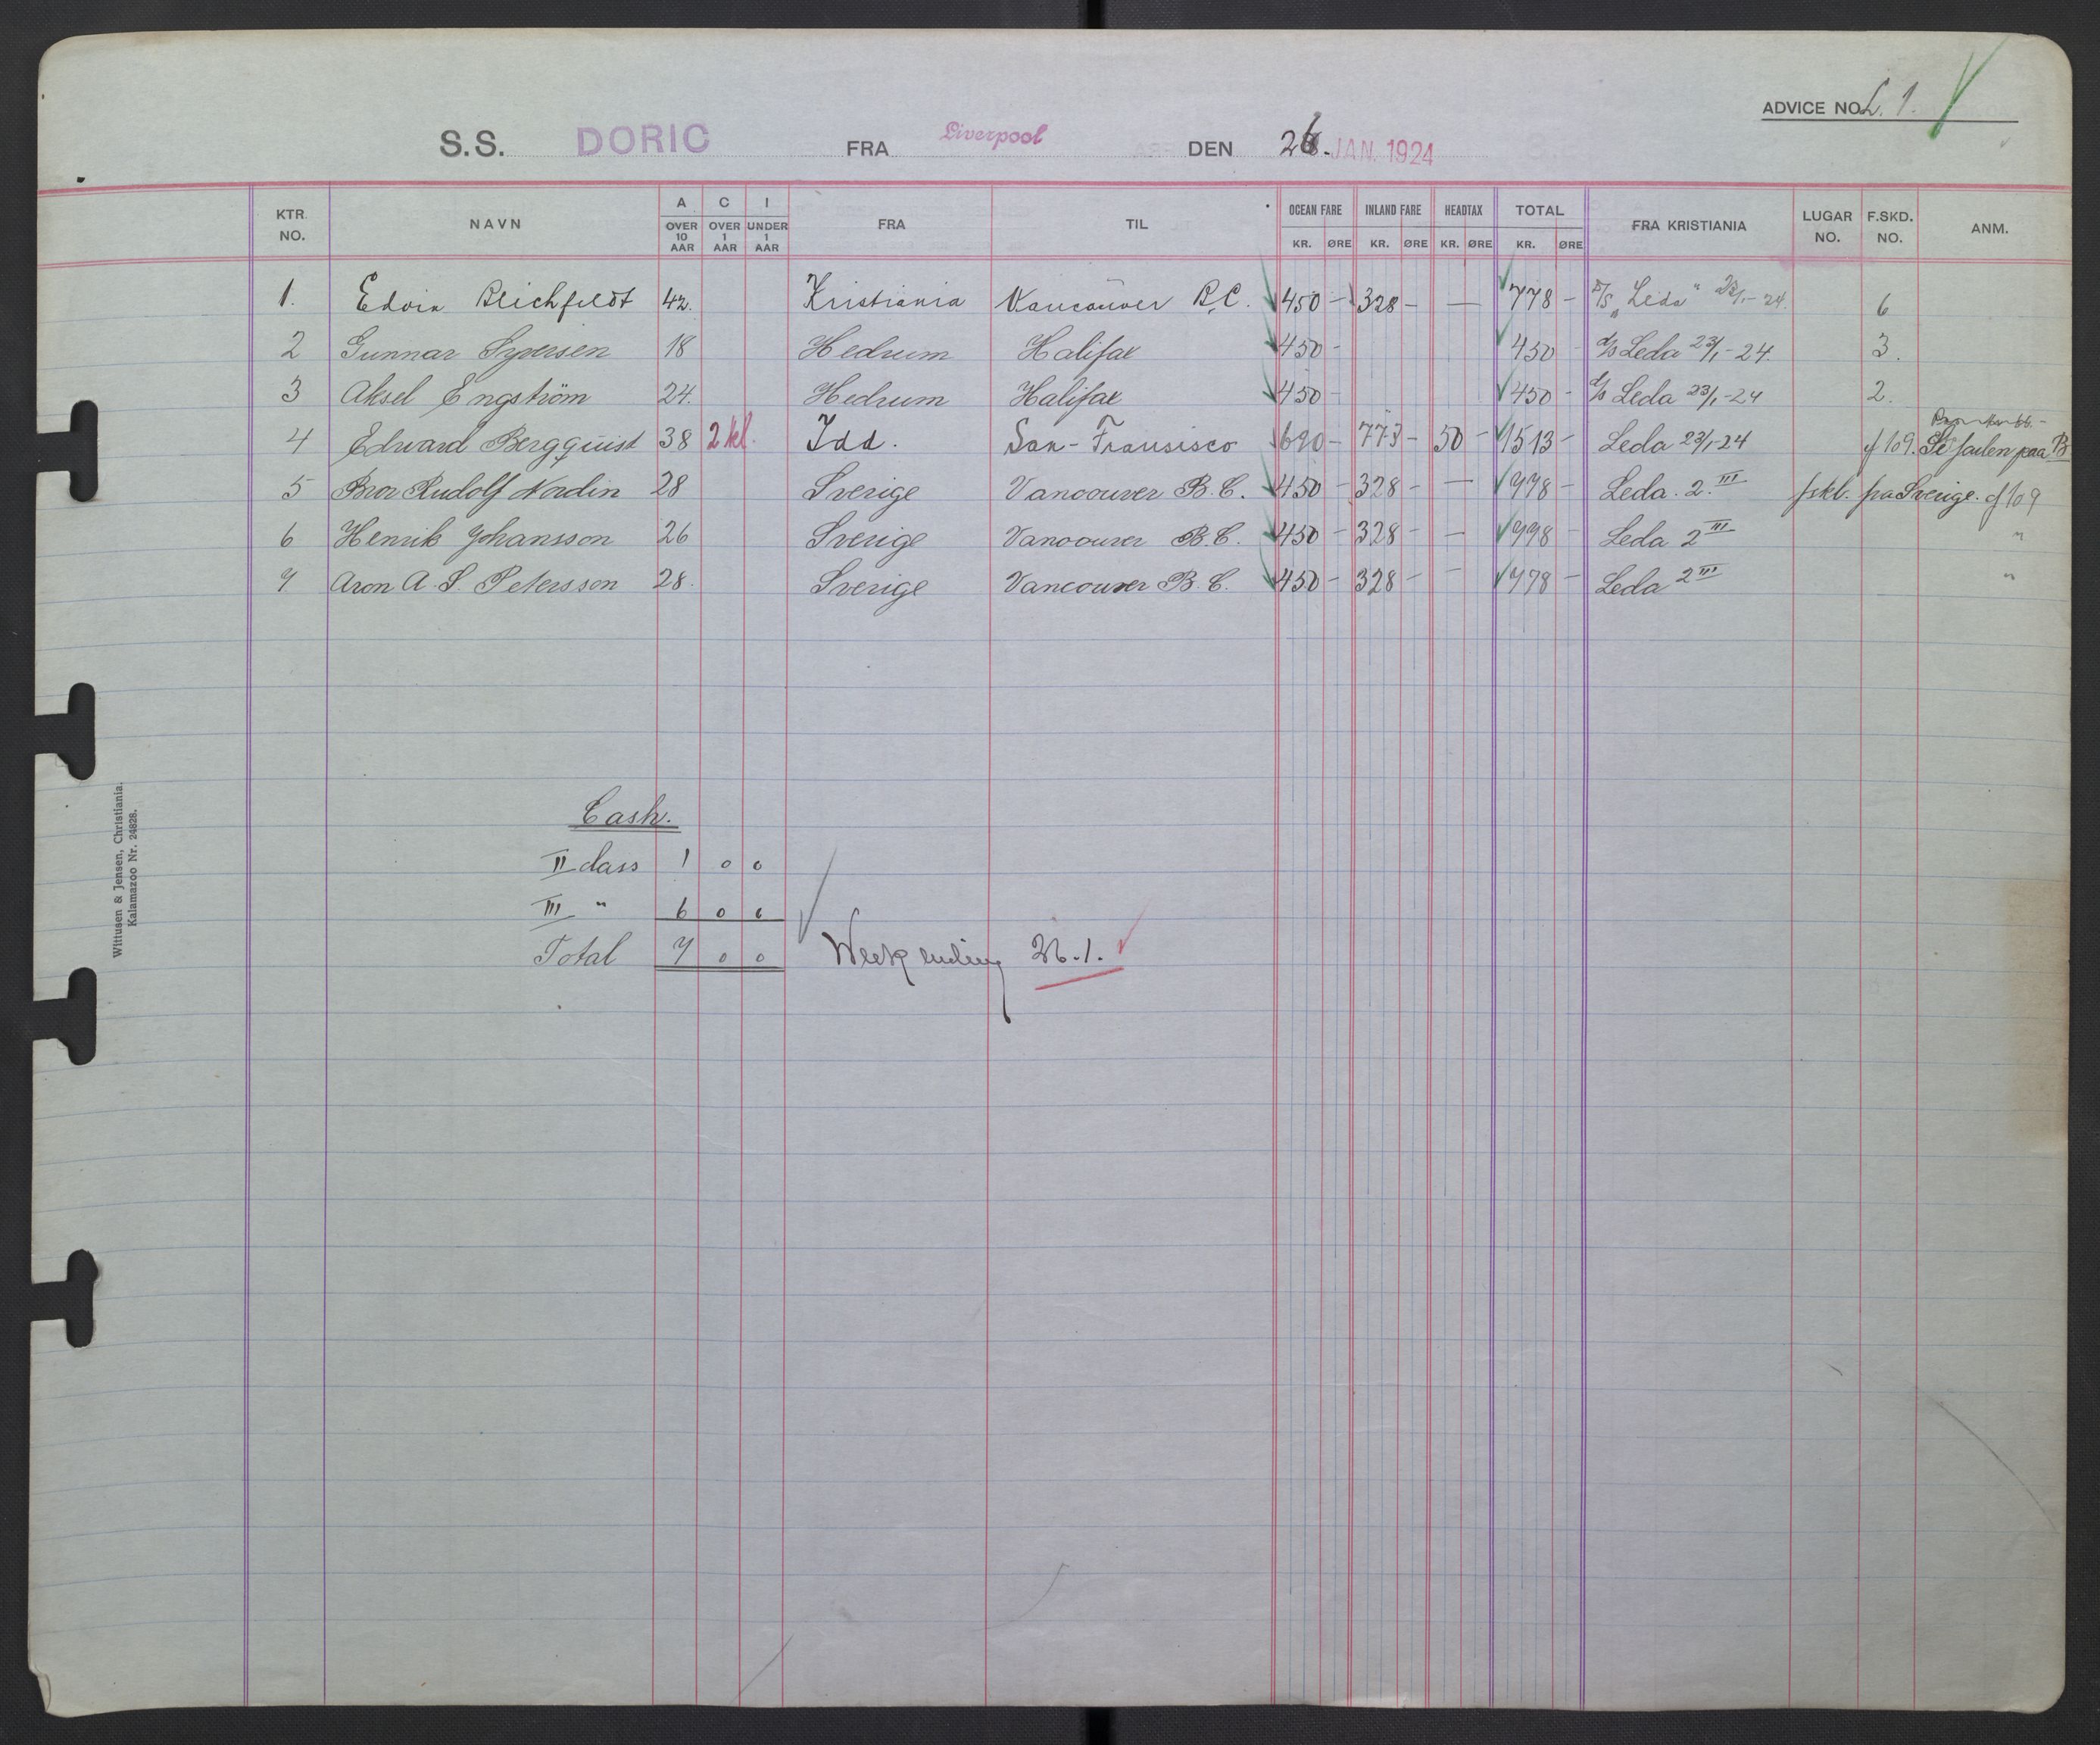 ADVICE NO. L. 1.
S.S. DORIC FRA Liverpool DEN 26. JAN. 1924
KTR. NO. NAVN A OVER 10 AAR C OVER 1 AAR I UNDER 1 AAR FRA TIL OCEAN FARE KR. ØRE INLAND FARE KR. ØRE HEADTAX KR. ØRE TOTAL KR. ØRE FRA KRISTIANIA LUGAR NO. F.SKD. NO. ANM.
1. Edvin Blichfeldt 42. Kristiania Vancouver B.C. 450 - 328 - — 778 - D/S "Leda" 23/1-24. 6
2 Gunnar Syversen 18 Hedrum Halifax 450 - 450 - D/S Leda 23/1-24. 3.
3 Aksel Engström 24. Hedrum Halifax 450 - 450 - D/S Leda 23/1-24 2.
4 Edward Bergquist 38 2 kl. Idd. San-Fransisco 690 - 773 - 50 - 1513 - Leda 23/1-24 f 109. Se faslen paa B
5 Bror Rudolf Nordin 28 Sverige Vancouver B.C. 450 - 328 - — 778 - Leda. 2. III fskl. fra Sverige. cf 109
6 Henrik Johansson 26 Sverige Vancouver B.C. 450 - 328 - — 778 - Leda 2 III "
7 Aron A. S. Petersson 28. Sverige Vancouver B.C. 450 - 328 - - 778 - Leda 2 III "
Cash.
II class 1 0 0
III " 6 0 0
Total 7 0 0 Week ending 26.1.
Wittusen & Jensen, Christiania.
Kalamazoo Nr. 24828.